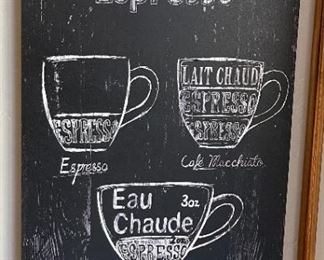 Espresso
ESPRESSO
Espresso
LAIT CHAUD
ESPRESSO
ESPRESSO
Café Macchiato
Eau 3oz
Chaude
ESPRESSO